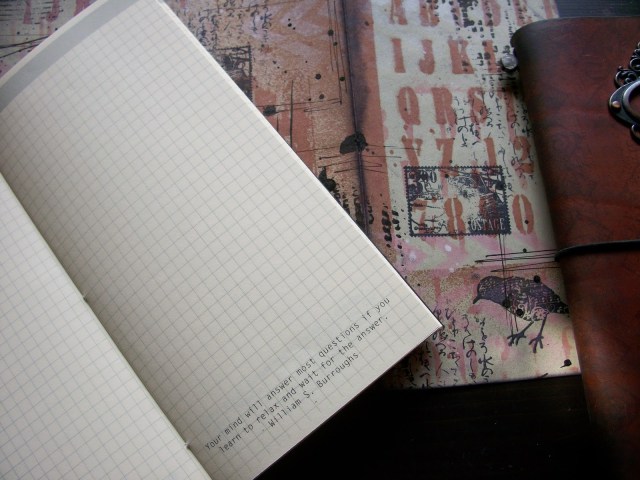 Your mind will answer most questions if you
learn to relax and wait for the answer.
- William S. Burroughs.
A B C D
I J K L
Q R S
Y Z 1 2
7 8 9 0
POSTAGE